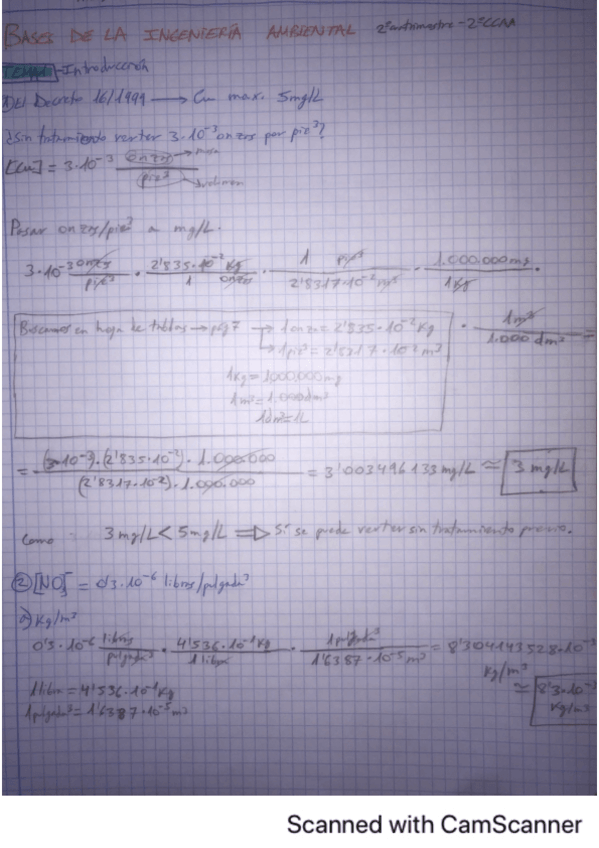 BASES DE LA INGENIERÍA AMBIENTAL 2º cuatrimestre - 2º CCAA
TEMA 1 - Introducción
① El Decreto 16/1999 → Cu max. 5mg/L
¿Sin tratamiento verter 3·10⁻³ onzas por pie³?
[Cu] = 3·10⁻³ onzas → masa / pie³ → volumen
Pasar onzas/pie³ a mg/L.
3·10⁻³ onzas/pie³ · 2'835·10⁻² Kg/1 onza · 1 pie³/2'8317·10⁻² m³ · 1.000.000mg/1Kg ·
Buscamos en hoja de tablas → pág 7 → 1 onza = 2'835·10⁻² Kg · 1m³/1.000 dm³ =
→ 1 pie³ = 2'8317·10⁻² m³
1Kg = 1000.000mg
1m³ = 1.000dm³
1dm³ = 1L
= (3·10⁻³)·(2'835·10⁻²)·1.000.000 / (2'8317·10⁻²)·1.000.000 = 3'003496133 mg/L ≃ 3 mg/L
Como 3 mg/L < 5 mg/L ⇒ Sí se puede verter sin tratamiento previo.
② [NO]⁻ = 0'3·10⁻⁶ libras/pulgada³
a) Kg/m³
0'3·10⁻⁶ libras/pulgada³ · 4'536·10⁻¹ Kg/1 libra · 1 pulgada³/1'6387·10⁻⁵ m³ = 8'304143528·10⁻³
Kg/m³
1 libra = 4'536·10⁻¹ Kg ≃ 8'3·10⁻³
1 pulgada³ = 1'6387·10⁻⁵ m³ Kg/m³
Scanned with CamScanner